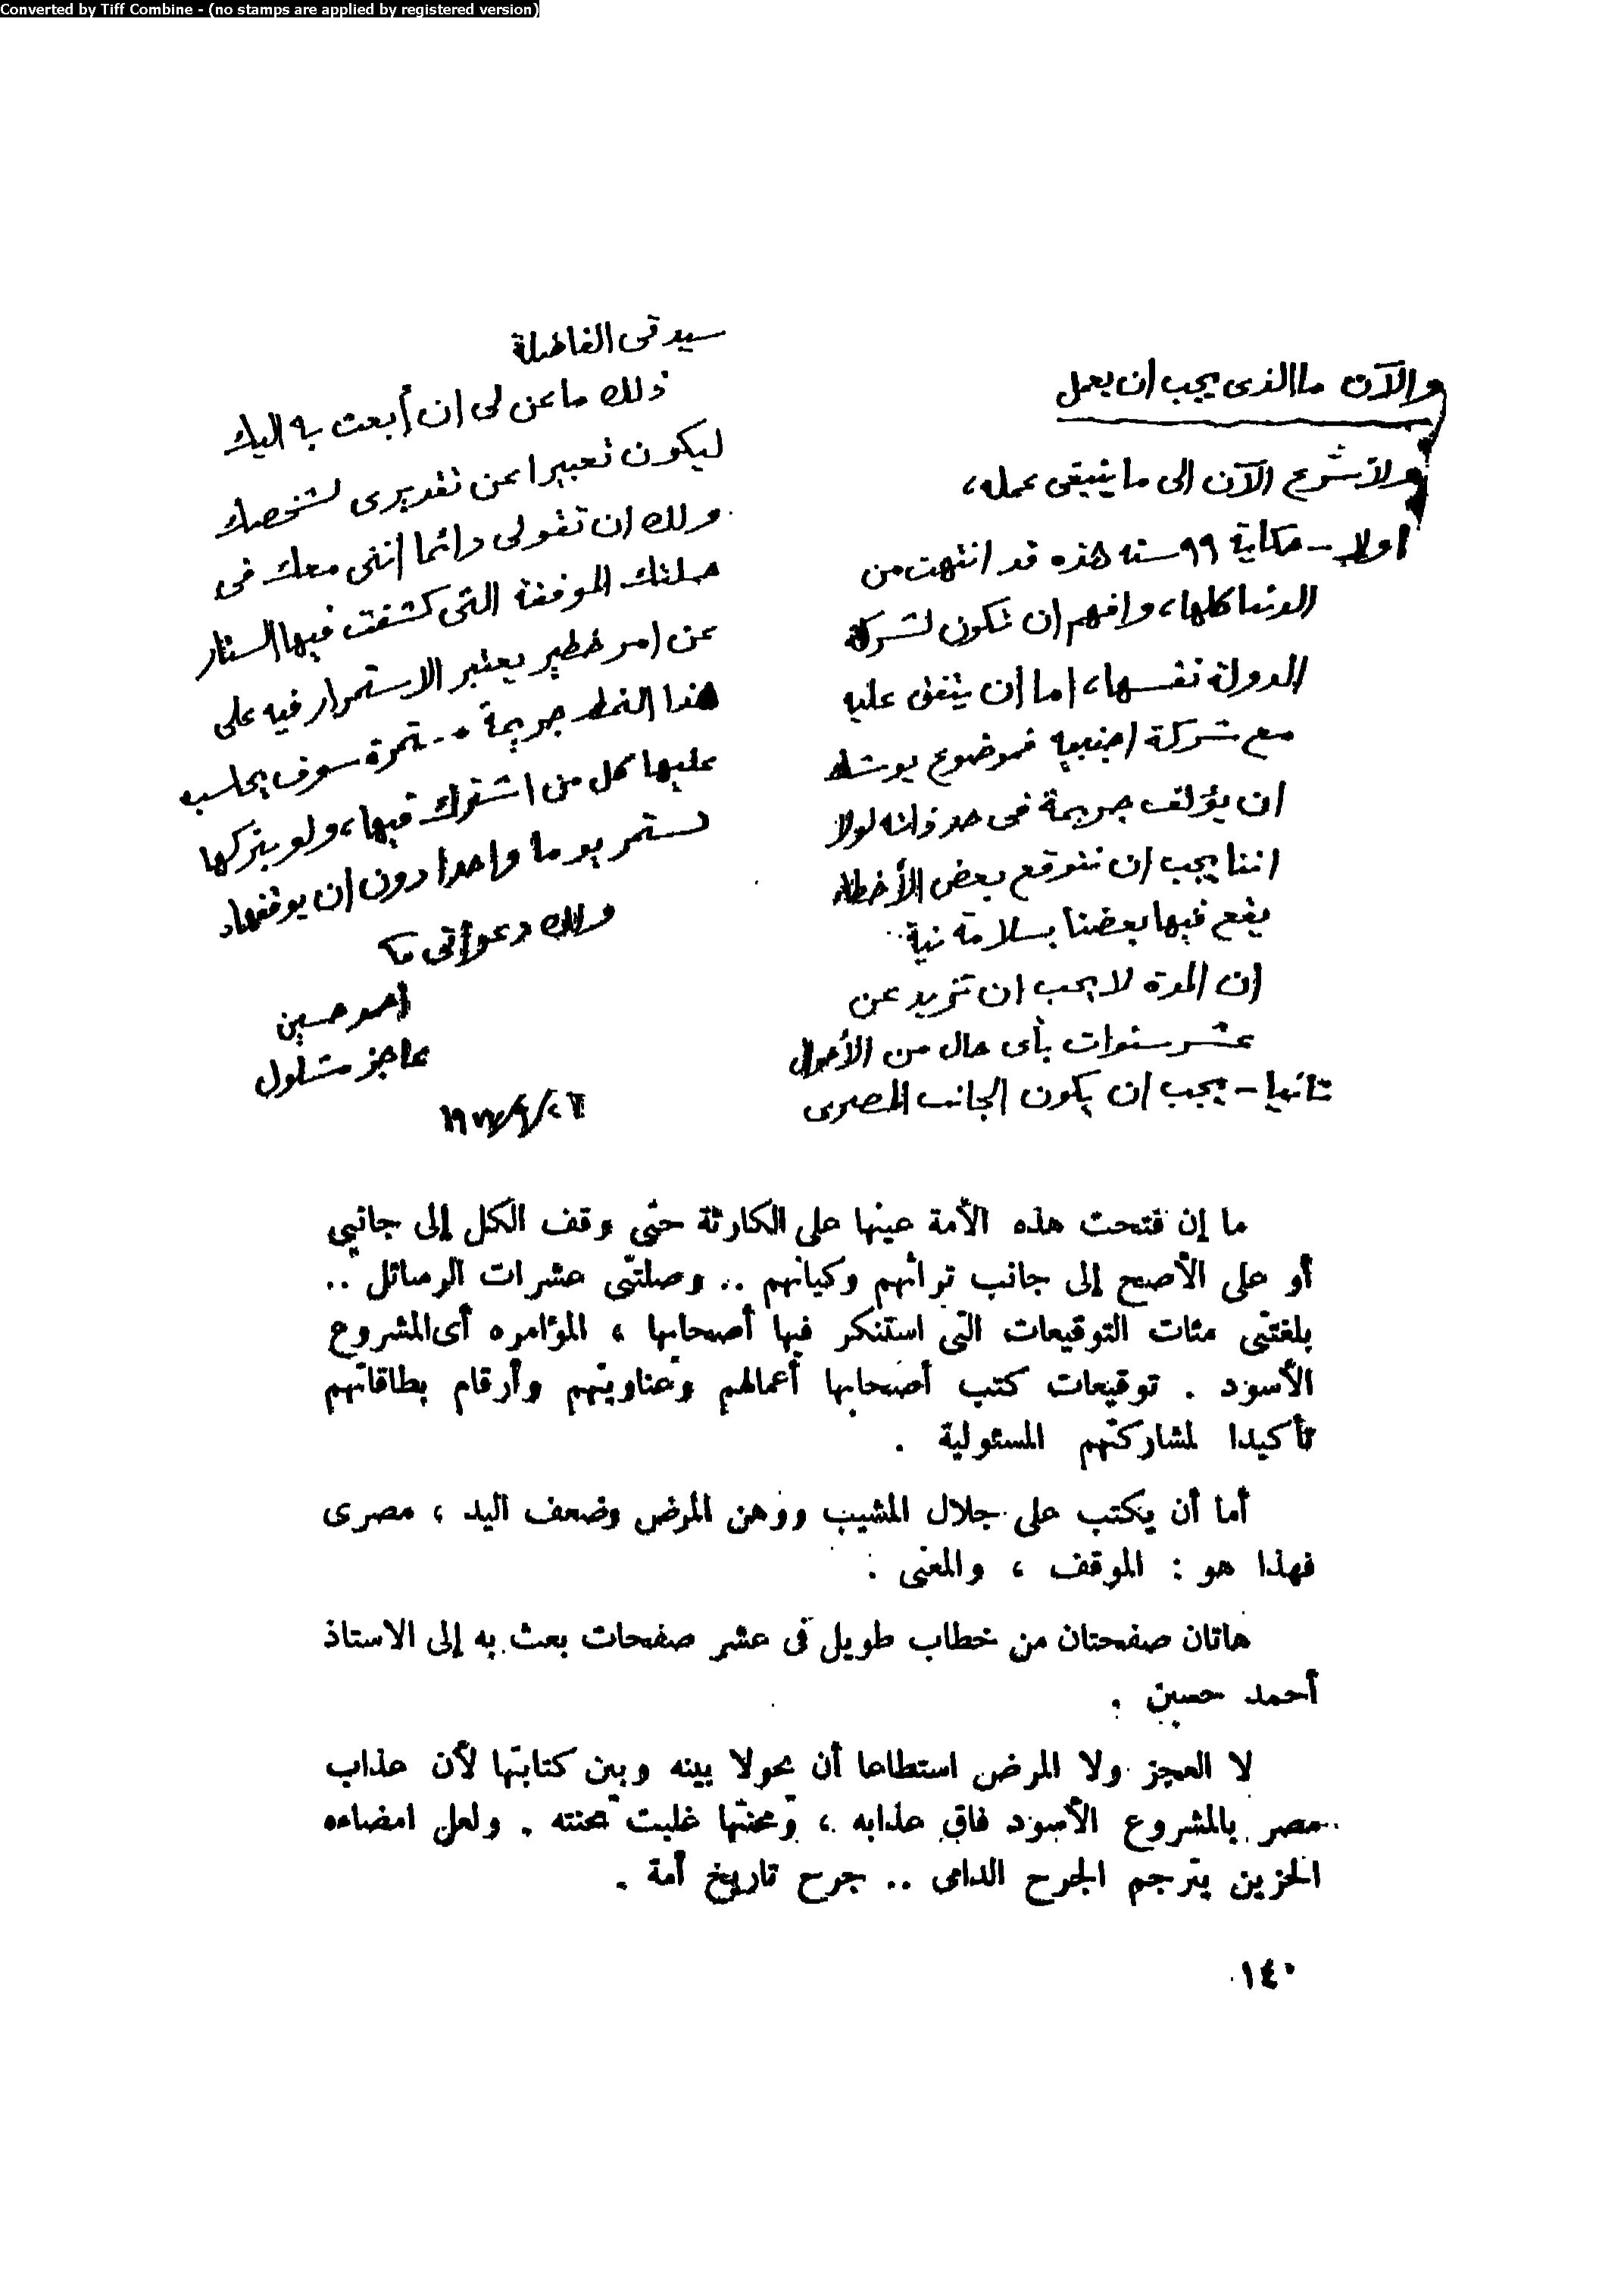 Converted by Tiff Combine - (no stamps are applied by registered version)
والآن ما الذى يجب ان يعمل
الآن الى ما ينبغى عمله،
اولا - حكاية ٩٩ سنه هذه قد انتهت من
الدنيا كلها، وافهم ان تكون لشركة
الدولة نفسها، اما أن يتفق عليه
مع شركة اجنبيه فموضوع يوشك
ان يؤلف جريمة فى حد ذاته لولا
اننا يجب ان نتوقع بعض الأخطاء
يقع فيها بعضنا بسلامة نية..
ان المدة لا يجب ان تزيد عن
عشر سنوات بأى حال من الأحوال
ثانيا - يجب ان يكون الجانب المصرى
سيدتى الفاضلة
ذلك ما عن لى ان أبعث به اليك
ليكون تعبيرا عن تقديرى لشخصك
ولك ان تقولى دائما اننى معك فى
حملتك الموفقة التى كشفت فيها الستار
عن امر خطير يعتبر الاستمرار فيه على
هذا النمط جريمة .. سوف يحاسب
عليها كل من اشترك فيها، ولو بتركها
تستمر يوما واحدا دون ان يوقفها
ولك دعواتى
احمد حسين
عاجز مشلول
ما إن فتحت هذه الأمة عينها على الكارثة حتى وقف الكل إلى جانبى
أو على الأصح إلى جانب تراثهم وكيانهم .. وصلتنى عشرات الرسائل ..
بلغتنى مئات التوقيعات التى استنكر فيها أصحابها ، المؤامره أى المشروع
الأسود . توقيعات كتب أصحابها أعمالهم وعناوينهم وأرقام بطاقاتهم
تأكيدا لمشاركتهم المسئولية .
أما أن يكتب على جلال المشيب ووهن المرض وضعف اليد ، مصرى
فهذا هو : الموقف ، والمعنى .
هاتان صفحتان من خطاب طويل فى عشر صفحات بعث به إلى الاستاذ
أحمد حسين .
لا العجز ولا المرض استطاعا أن يحولا بينه وبين كتابتها لأن عذاب
مصر بالمشروع الأسود فاق عذابه ، ومحنتها غلبت محنته . ولعل امضاءه
الحزين يترجم الجرح الدامى .. جرح تاريخ أمة .
١٤٠